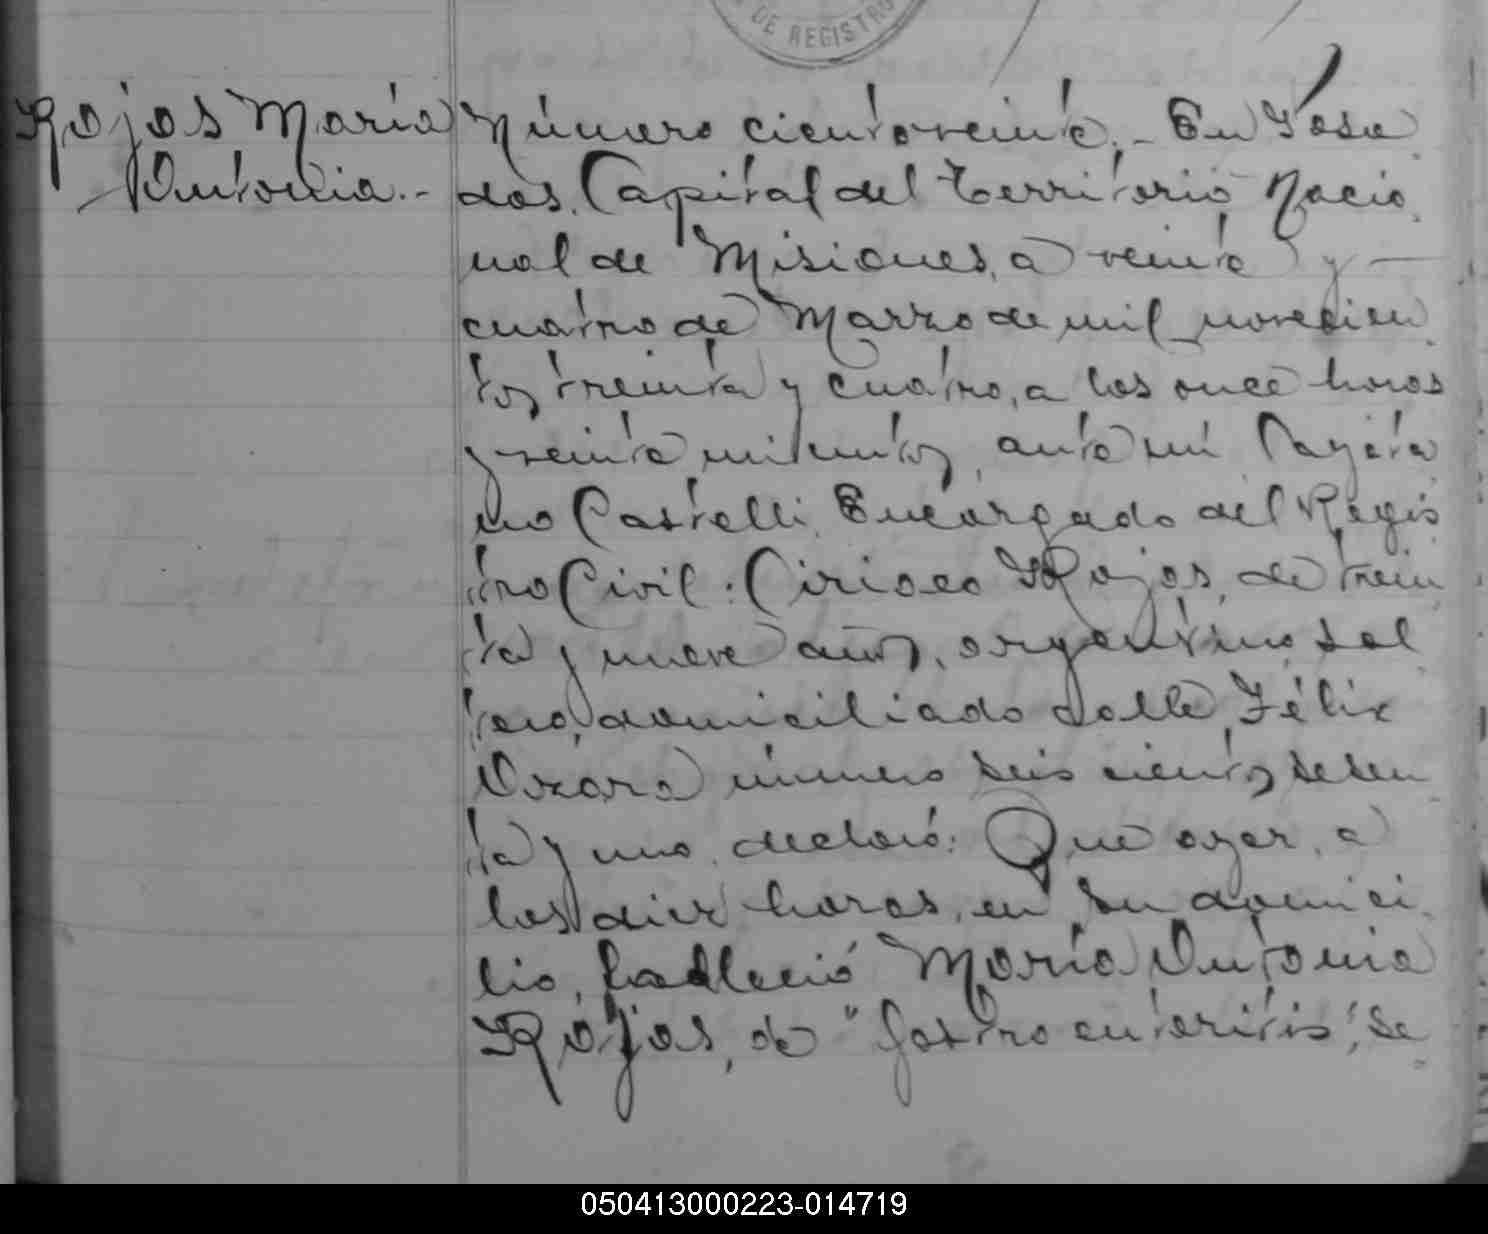 DE REGISTRO
Rojas María
Antonia.-
Número cientoveinte.- En Posa
das, Capital del Territorio Nacio
nal de Misiones, a veinte y
cuatro de Marzo de mil novecien
tos treinta y cuatro, a las once horas
y veinte minutos, ante mí Cayeta
no Castelli, Encargado del Regis
tro Civil: Ciriaco Rojas, de trein
ta y nueve años, argentino, sol
tero, domiciliado calle Félix
Azara número seis cientos sesen
ta y uno, declaró: Que ayer, a
las diez horas, en su domici
lio, falleció María Antonia
Rojas, de "gastro enteritis", se
050413000223-014719